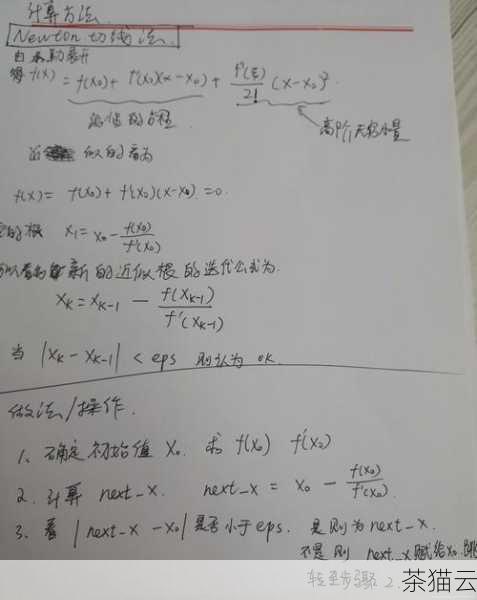 计算方法.
Newton 切线法.
由泰勒展开
得 f(x) = f(x₀) + f'(x₀)(x-x₀) + f''(ξ)/2! (x-x₀)².
的方程
高阶无穷小量
近 似的看为
f(x) = f(x₀) + f'(x₀)(x-x₀) = 0.
的根 x₁ = x₀ - f(x₀)/f'(x₀)
新的近似根的迭代公式为.
xₖ = xₖ₋₁ - f(xₖ₋₁)/f'(xₖ₋₁)
当 |xₖ - xₖ₋₁| < eps 则认为 ok.
做法/操作.
1、确定初始值 x₀. 求 f(x₀) f'(x₀)
2、计算 next_x. next_x = x₀ - f(x₀)/f'(x₀).
3、看 | next_x - x₀| 是否小于 eps. 是则为 next_x.
不是则 next_x 赋给 x₀. 跳
转至步骤 2.
茶猫云